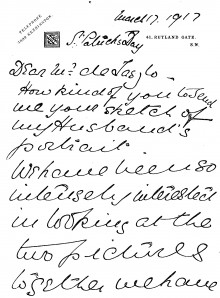 March 17. 1917
TELEPHONE
41, RUTLAND GATE,
S.W.
St Patricks Day
Dear Mr de Laszlo.
How kind of you to send
me your sketch of
my Husband's
portrait
We have been so
intensely interested
in looking at the
two pictures
together we have